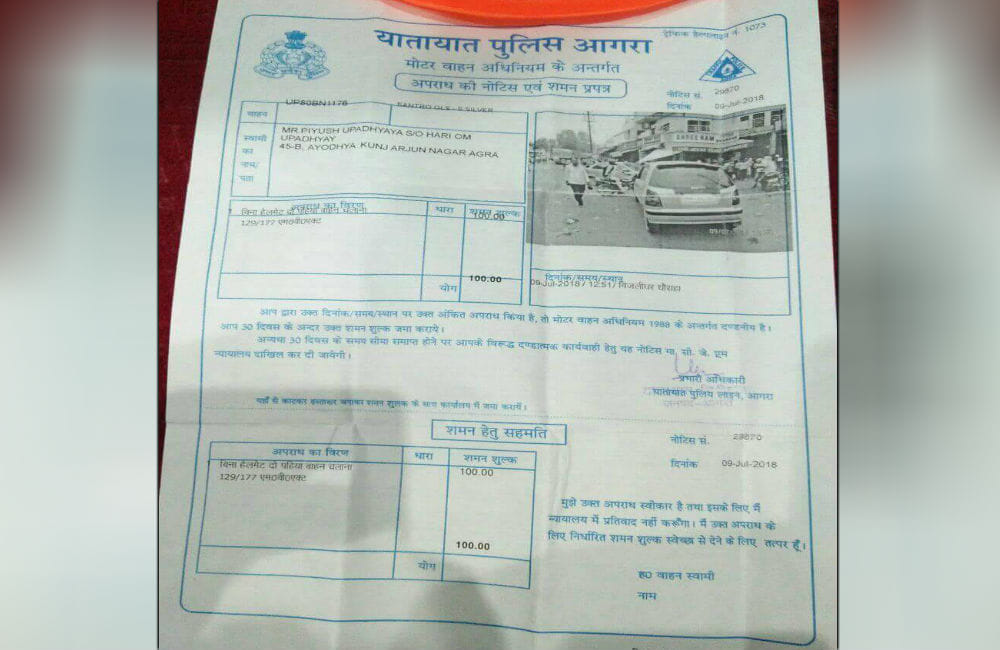 ट्रैफिक हेल्पलाइन नं. 1073
यातायात पुलिस आगरा
मोटर वाहन अधिनियम के अन्तर्गत
अपराध की नोटिस एवं शमन प्रपत्र
नोटिस सं. 29870
दिनांक 09-Jul-2018
वाहन UP80BN1176 SANTRO GLS - S SILVER
स्वामी का नाम/पता
MR.PIYUSH UPADHYAYA S/O HARI OM
UPADHYAY
45-B, AYODHYA KUNJ ARJUN NAGAR AGRA
SHREE RAM
अपराध का विरण धारा शमन शुल्क
बिना हेलमेट दो पहिया वाहन चलाना 100.00
129/177 एम0वी0एक्ट
योग 100.00
दिनांक/समय/स्थान
09-Jul-2018 / 12:51/ बिजलीघर चौराहा
आप द्वारा उक्त दिनांक/समय/स्थान पर उक्त अंकित अपराध किया है, तो मोटर वाहन अधिनियम 1988 के अन्तर्गत दण्डनीय है।
आप 30 दिवस के अन्दर उक्त शमन शुल्क जमा कराये।
अन्यथा 30 दिवस के समय सीमा समाप्त होने पर आपके विरूद्ध दण्डात्मक कार्यवाही हेतु यह नोटिस मा. सी. जे. एम
न्यायालय दाखिल कर दी जावेगी।
प्रभारी अधिकारी
यातायात पुलिय लाइन, आगरा
यहाँ से काटकर हस्ताक्षर बनाकर शमन शुलक के साथ कार्यालय में जमा करायें।
शमन हेतु सहमति
नोटिस सं. 29870
दिनांक 09-Jul-2018
अपराध का विरण धारा शमन शुल्क
बिना हेलमेट दो पहिया वाहन चलाना 100.00
129/177 एम0वी0एक्ट
योग 100.00
मुझे उक्त अपराध स्वीकार है तथा इसके लिए मैं
न्यायालय में प्रतिवाद नहीं करूँगा। मैं उक्त अपराध के
लिए निर्धारित शमन शुल्क स्वेच्छा से देने के लिए तत्पर हूँ।
ह0 वाहन स्वामी
नाम